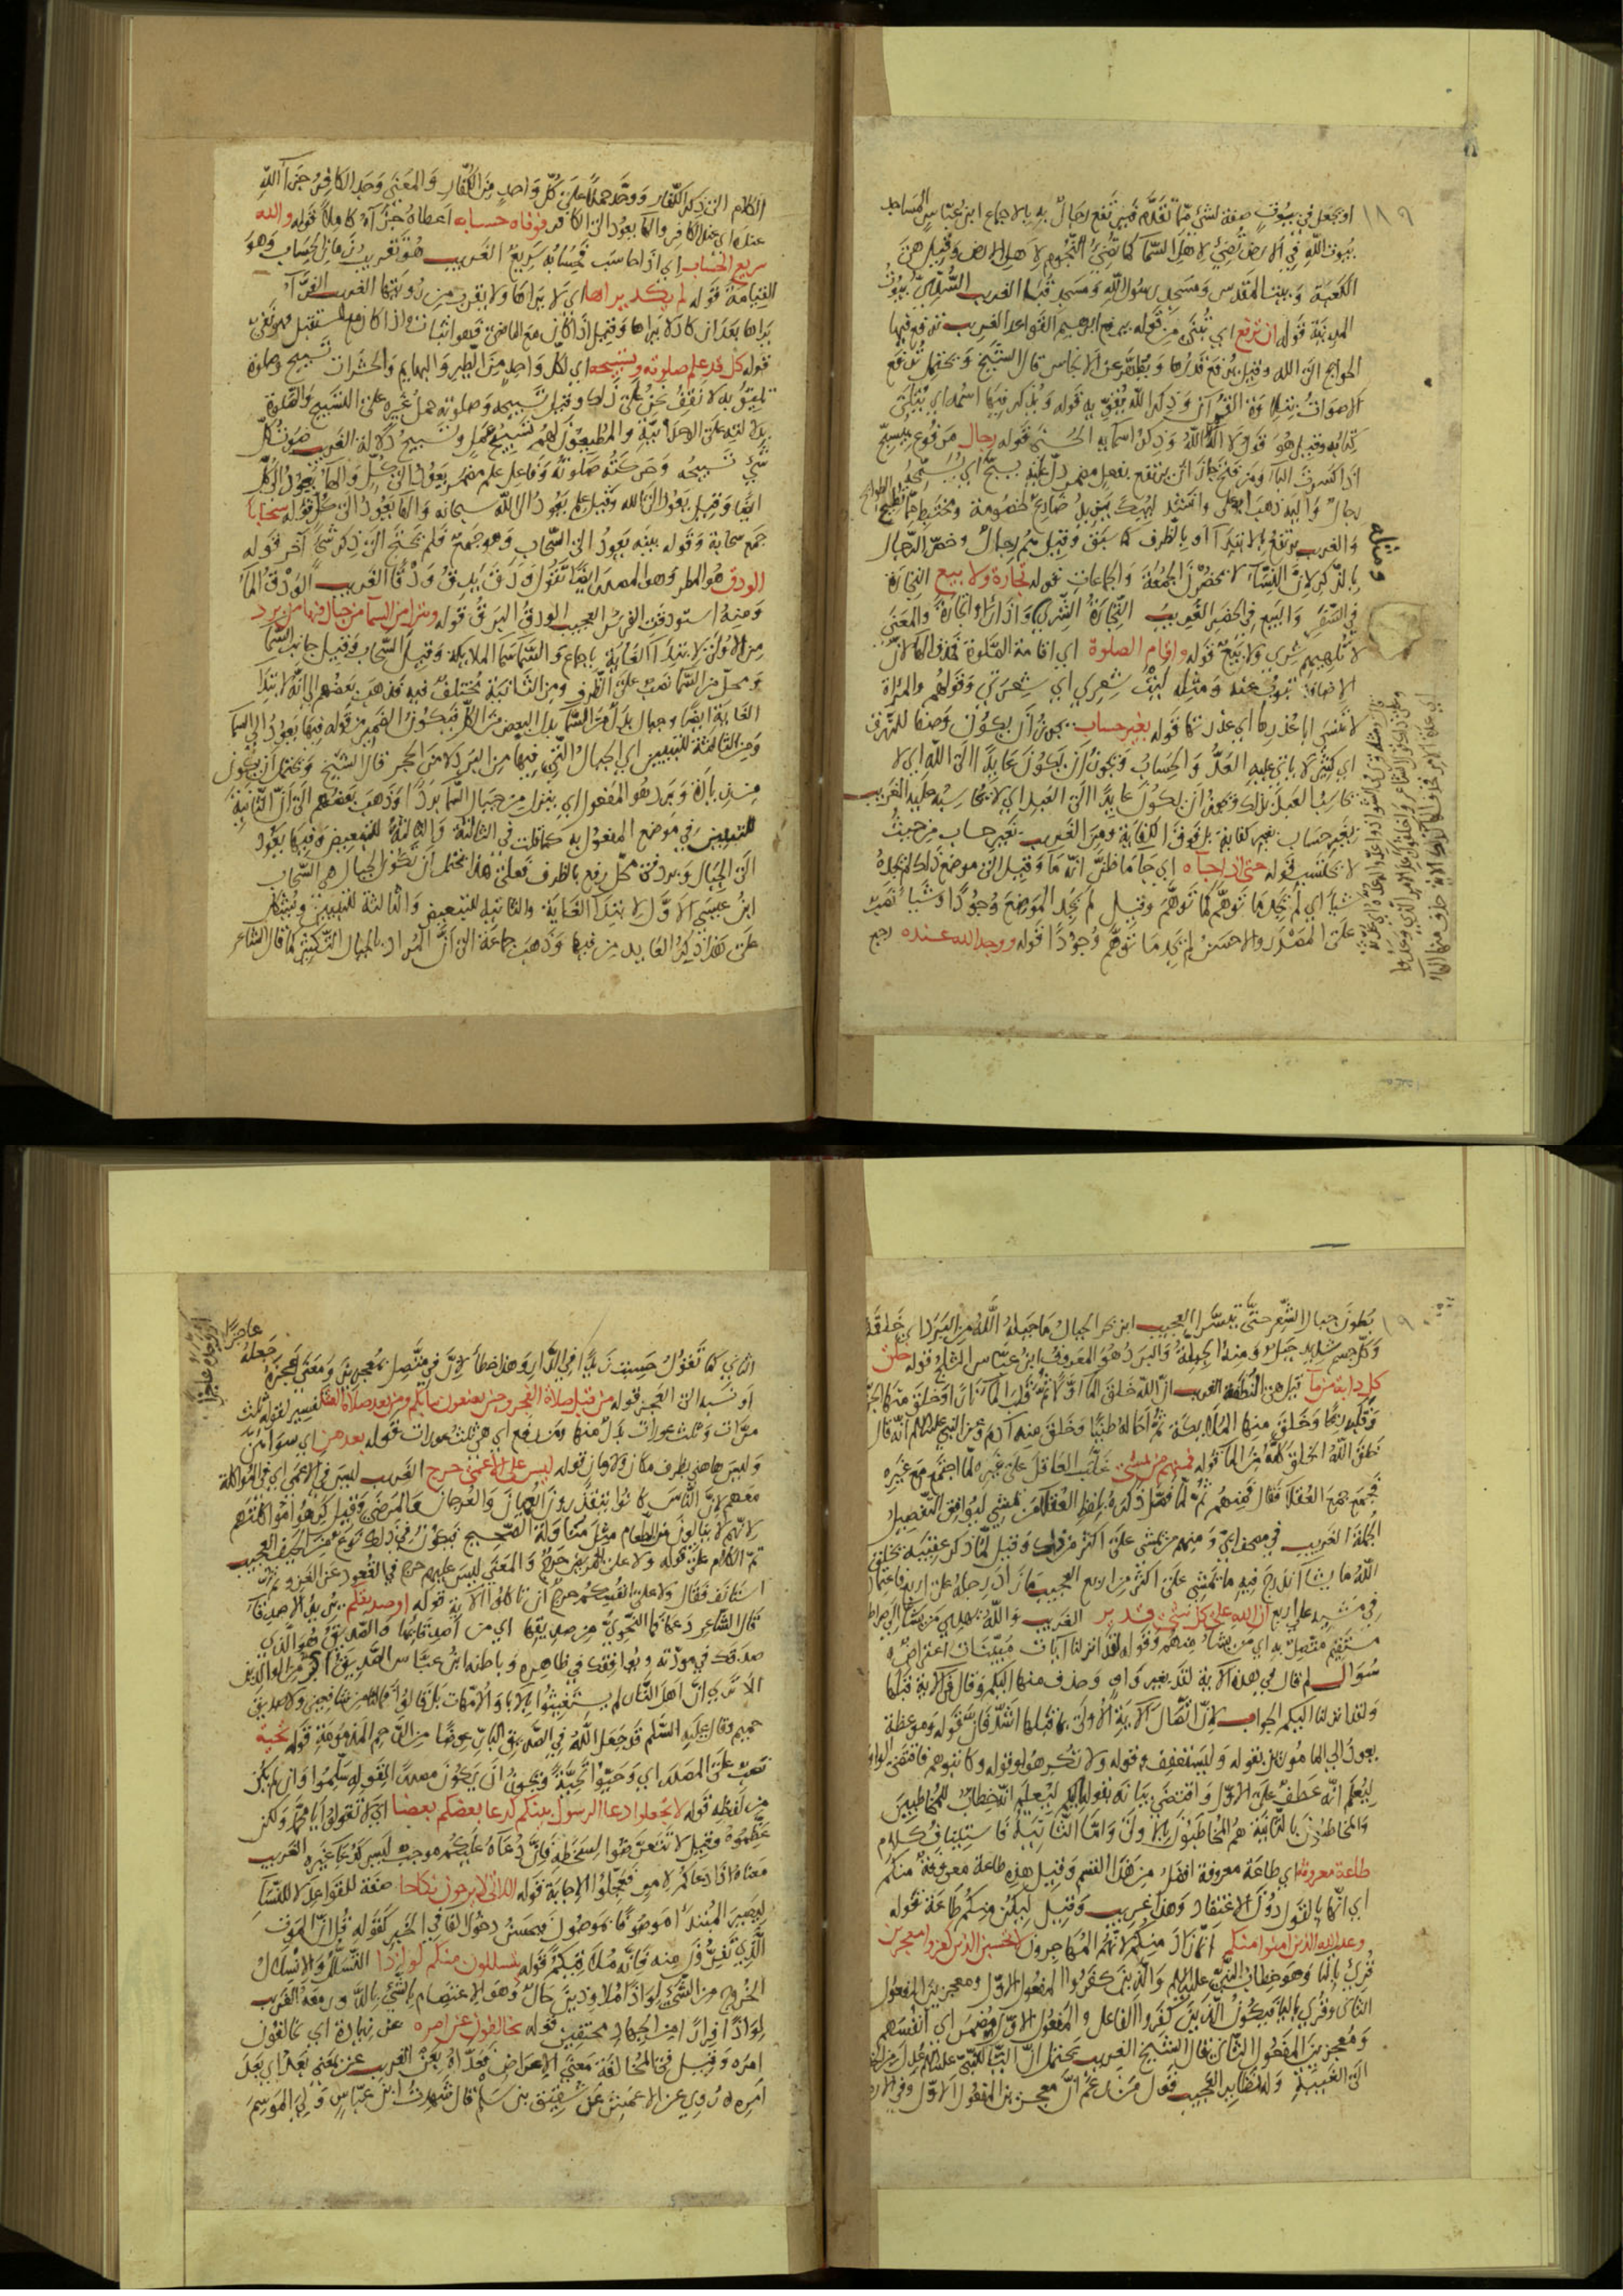 ١٨٩
او يجعل في بيوت صفة لشيء مما تقدم فيرتفع رجال به بالاجماع ابن عباس المساجد
بيوت الله في الارض تضيء لاهل السما كما تضيء النجوم لاهل الارض وقيل هن
الكعبة وبيت المقدس ومسجد رسول الله ومسجد قبا الغريب السدي بيوت
المدينة قوله ان ترفع اي تبنى من قوله يرفع ابرهيم القواعد الغريب ترفع فيها
الحوايج الى الله وقيل ترفع قدرها وتطهر عن الانجاس قال الشيخ ويحتمل ترفع
الاصوات بتلاوة القرآن وذكر الله يقويه قوله ويذكر فيها اسمه اي يتلى
كتابه وقيل هو قول لا اله الا الله وذكر اسمايه الحسنى قوله رجال مرفوع بيسبح
اذا كسرت البآ ومن فتح جاز ان يرتفع بفعل مضمر دل عليه يسبح اي يسبحه
رجال واليه ذهب ابو علي وانشد ليبك يزيد ضارع لخصومة ومختبط مما تطيح الطوايح
والغريب يرتفع بالابتدآ او بالظرف كما سبق وقيل هم رجال وخص الرجال
بالذكر لان النسآ لا يحضرن الجمعة والجماعات قوله تجارة ولا بيع التجارة
في السفر والبيع في الحضر الغريب التجارة الشرى واذا راوا تجارة والمعنى
لا تلهيهم شرى ولا بيع قوله واقام الصلوة اي اقامة الصلوة فحذف الها لان
الاضافة تنوب عنه ومثله ليت شعري اي شعرتي وقولهم والمراة
لا تنسى ابا عذرها اي عذرتها قوله بغير حساب يجوز ان يكون وصفا للرزق
اي كثير لا ياتي عليه العد والحساب ويجوز ان يكون عايدا الى الله اي لا
يحاسب العبد بذلك ويجوز ان يكون عايدا الى العبد اي لا يحاسبه عليه الغريب
بغير حساب بغير كفاية بل فوق الكفاية ومن الغريب بغير حساب من حيث
لا يحتسب قوله حتى اذا جاه اي جا ما ظن انه ما وقيل الى موضع ذلك لم يجده
شيا اي لم يجد ما توهم كما توهم وقيل لم يجد الموضع وجودا وشيا نصب
على المصدر والاحسن لم يجد ما توهم وجودا قوله ووجد الله عنده رجع
ومثله
الكلام الى ذكر الكفار ووحد حملا على كل واحد من الكفار والمعنى وجد الكافر جزآ الله
عنده اي عند الكافر والها يعود الى الكافر فوفاه حسابه اعطاه جزآه كاملا قوله والله
سريع الحساب اي اذا حاسب فحسابه سريع الغريب هو تقريب زمان الحساب وهو
القيامة قوله لم يكد يراها اي لا يراها ولا يقرب من رويتها الغريب الفرآ
يراها بعد ان كاد لا يراها وقيل اذا كان مع الماضي فهو اثبات واذا كان مع المستقبل فهو نفي
قوله كل قد علم صلوته وتسبيحه اي لكل واحد من الطير والبهايم والحشرات تسبيح وصلوة
تليق به لا نقف نحن على ذلك وقيل تسبيحه وصلوته حمل غيره على التسبيح والصلوة
شي تسبيحه وحركته صلوته وفاعل علم مضمر يعود الى كل والها يعود الى كل
ايضا وقيل يعود الى الله وقيل علم يعود الى الله سبحانه والها يعود الى كل قوله سحابا
جمع سحابة وقوله بينه يعود الى السحاب وهو جمع فلم يحتج الى ذكر شي آخر قوله
الودق هو المطر وهو المصدر ايضا تقول ودق يدق ودقا الغريب الودق الما
ومنه استودقت الفرس العجيب الودق البرق قوله وينزل من السمآ من جبال فيها من برد
من الاولى لابتدآ الغاية باجماع والسما سما الملايكة وقيل السحاب وقيل جانب السما
ومحل من السما نصب على الظرف ومن الثانية مختلف فيه فذهب بعضهم الى انه لابتدآ
الغاية ايضا وجبال بدل من السما بدل البعض من الكل فيكون الضمير من قوله فيها يعود الى السما
ومن الثالثة للتبيين اي الجبال التي فيها من البرد لا من الحجر قال الشيخ ويحتمل ان يكون
من زيادة وبرد هو المفعول اي ينزل من جبال السما بردا وذهب بعضهم الى ان الثانية
للتبعيض في موضع المفعول به كما قلت في الثالثة والثالثة للتبعيض وفيها يعود
الى الجبال وبرد في محل رفع بالظرف فعلى هذا يحتمل ان تكون الجبال هي السحاب
ابن عيسى الاول لابتدآ الغاية والثانية للتبعيض والثالثة للتبيين
على هذا ذكر العايد من فيها وذهب جماعة الى ان المراد بالجبال التكثير كما قال الشاعر
١٩٠
بطون جبال الشعر حتى تيسرا العجيب ابن بحر الجبال ما جبله الله من البرد اي خلقه
وكل جسم شديد جبل ومنه الجبلة والبرد هو المعروف ابن عباس الثلج قوله خلق
كل دابة من مآ قيل هي النطفة الغريب ان الله خلق المآ اولا ثم قلب المآ نارا وخلق منها الجن
وقلبه ريحا وخلق منها الملايكة ثم احاله طينا وخلق منه آدم وعن النبي عليه السلام انه قال
خلق الله الخلق كله من الما قوله فمنهم من يمشي غلب العاقل على غيره لما اجتمع مع غيره
فجمع جمع العقلا فقال فمنهم ثم لما فصل ذكره بلفظ العقلا من يمشي ليوافق التفصيل
الجملة الغريب في مصحف ابي ومنهم من يمشي على اكثر من ذلك وقيل لما ذكر عقيبه يخلق
الله ما يشا اندرج فيه ما يمشي على اكثر من اربع العجيب ما زاد رجله على اربع فاعتماده
في مشيه على اربع ان الله على كل شي قدير الغريب والله يهدي من يشا الى صراط
مستقيم متصل به اي من يشا منهم وقوله لقد انزلنا آيات مبينات اعتراض
سوال لم قال في هذه الآية لقد بغير واو وحذف منها اليكم وقال في الآية قبلها
ولقد انزلنا اليكم الجواب لان اتصال الآية الاولى بما قبلها اشد فان قوله وموعظة
يعود الى المامورين بقوله وليستعفف وقوله ولا تكرهوا وقوله وكاتبوهم فاقتضى الواو
ليعلم انه عطف على الاول واقتضى بيانه بقوله اليكم ليعلم انه خطاب للمخاطبين
والمخاطبون بالثانية هم المخاطبون بالاولى واما الثانية فاستيناف كلام
طاعة معروفة اي طاعة معروفة افضل من هذا القسم وقيل هذه طاعة معروفة منكم
اي انها بالقول دون الاعتقاد وهذا غريب وقيل ليكن منكم طاعة قوله
وعد الله الذين امنوا منكم انما زاد منكم لانهم المهاجرون لا تحسبن الذين كفروا معجزين
قرئ بالتا وهو خطاب للنبي عليه السلام والذين كفروا المفعول الاول ومعجزين المفعول
الثاني وقرئ باليا فيكون الذين كفروا الفاعل والمفعول الاول مضمر اي انفسهم
ومعجزين المفعول الثاني قال الشيخ الغريب يحتمل ان التا للنبي عليه السلام عدل من الخطاب
الى الغيبة وله نظاير العجيب قول من زعم ان معجزين المفعول الاول وفي الارض
الثاني كما تقول حسبت زيدا في الدار وهذا خطا لان في متصل بمعجزين ومعنى اعجزه
جعله عاجزا
او نسبه الى العجز قوله من قبل صلاة الفجر وحين تضعون ثيابكم ومن بعد صلاة العشا تفسير لقوله ثلث
مرات وثلث عورات بدل منها ومن رفع اي هي ثلث عورات قوله بعدهن اي سواهن
وليس هاهنا بظرف مكان ولا زمان قوله ليس على الاعمى حرج الغريب ليس في الاعمى اي في المواكلة
معهم لان الناس كانوا يتقذرون العميان والعرجان والمرضى وقيل كرهوا مواكلتهم
لانهم لا ينالون من الطعام مثل مناولة الصحيح فيكون في ذلك نوع من الحيف العجيب
تم الكلام على قوله ولا على المريض حرج والمعنى ليس عليهم حرج في القعود عن الغزو ثم
استانف فقال ولا على انفسكم حرج ان تاكلوا الآية قوله او صديقكم يريد الاصدقآ
قال الشاعر دعها فما النحوي من صديقها اي من اصدقايها والصديق هو الذي
صدقك في مودته ويوافقك في ظاهره وباطنه ابن عباس الصديق اكثر من الوالدين
الا ترى ان اهل النار لم يستغيثوا بالابا والامهات بل قالوا فما لنا من شافعين ولا صديق
حميم وقال عليه السلم قد جعل الله في الصديق البار عوضا من الرحم المذمومة قوله تحية
نصب على المصدر اي وحيوا تحية ويجوز ان يكون مصدرا لقوله سلموا وان لم يكن
من لفظه قوله لا تجعلوا دعا الرسول بينكم كدعا بعضكم بعضا اي لا تقولوا يا محمد ولكن
عظموه وقيل لا تتعرضوا لسخطه فان دعآه عليكم موجب ليس كدعا غيره الغريب
معناه اذا دعاكم لامر فعجلوا الاجابة قوله اللاتي لا يرجون نكاحا صفة للقواعد لا للنسآ
ليصير المبتدآ موصوفا بموصول فيحسن دخول الفا في الخبر كقوله قل ان الموت
الذي تفرون منه فانه ملاقيكم قوله يتسللون منكم لواذا التسلل والانسلال
الخروج من الشيء لواذا ملاوذين حال وهو الاعتصام بالشيء الغريب
لواذا فرارا من الجهاد مختفين قوله يخالفون عن امره عن زيادة اي يخالفون
امره وقيل في المخالفة معنى الاعراض فعداه بعن الغريب عن بمعنى بعد اي بعد
امره روي عن الاعمش عن شقيق بن سلم قال شهدت ابن عباس ولي الموسم